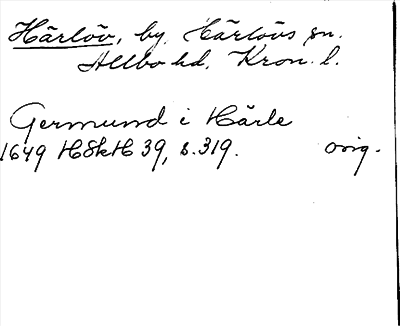 Härlöv, by. Härlövs sn.
Allbo hd. Kron. l.
Germund i Härle
1649 HSkH 39, s. 319. orig.